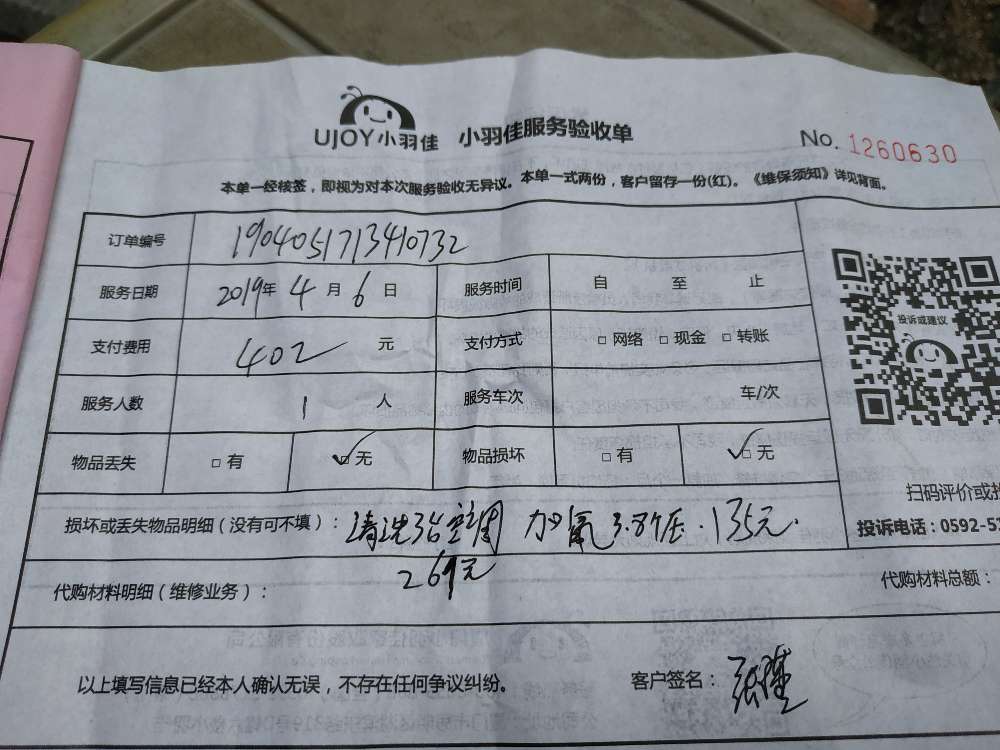 UJOY小羽佳 小羽佳服务验收单
No. 1260630
本单一经核签，即视为对本次服务验收无异议。本单一式两份，客户留存一份(红)。《维保须知》详见背面。
订单编号 1904051713410732
服务日期 2019年 4 月 6 日 服务时间 自 至 止
投诉或建议
支付费用 402 元 支付方式 □ 网络 □ 现金 □ 转账
服务人数 1 人 服务车次 车/次
物品丢失 □ 有 ☑ 无 物品损坏 □ 有 ☑ 无
扫码评价或投
损坏或丢失物品明细（没有可不填）： 清洗3台空调 加氟3.8个压.135元.
投诉电话：0592-5
269元
代购材料明细（维修业务）： 代购材料总额：
以上填写信息已经本人确认无误，不存在任何争议纠纷。 客户签名：